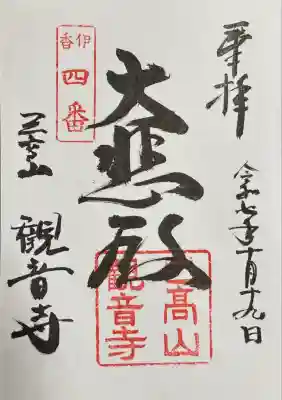 奉拝
令和七年十月十九日
伊香
四番
大悲殿
髙山
観音寺
観音寺